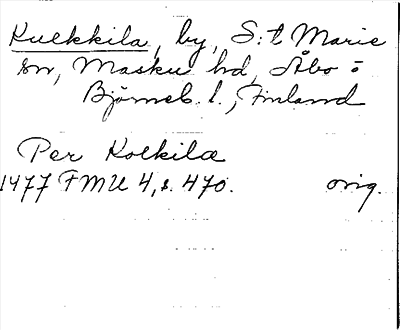 Kulkkila, by, S:t Marie
sn, Masku hd, Åbo o
Björneb. l., Finland
Per Kolkila
1477 FMU 4, s. 470. orig.